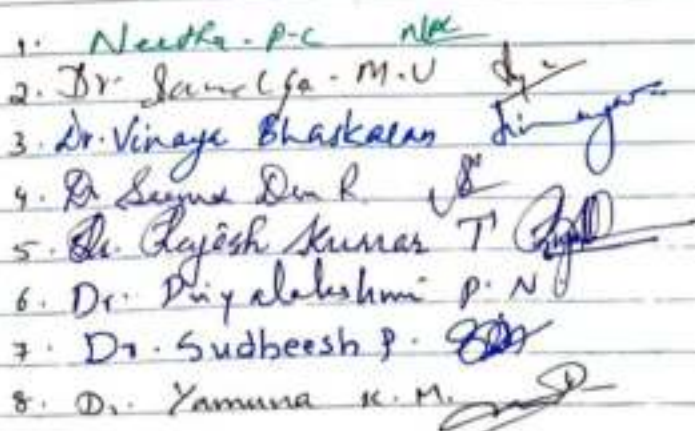 1. Neetha. P-C
2. Dr. M.U
3. Dr. Vinaya Bhaskaran
4. Dr R.
5. Dr. Rajesh Kumar T
6. Dr. Priyalakshmi P. N
7. Dr. Sudheesh P.
8. Dr. Yamuna K. M.